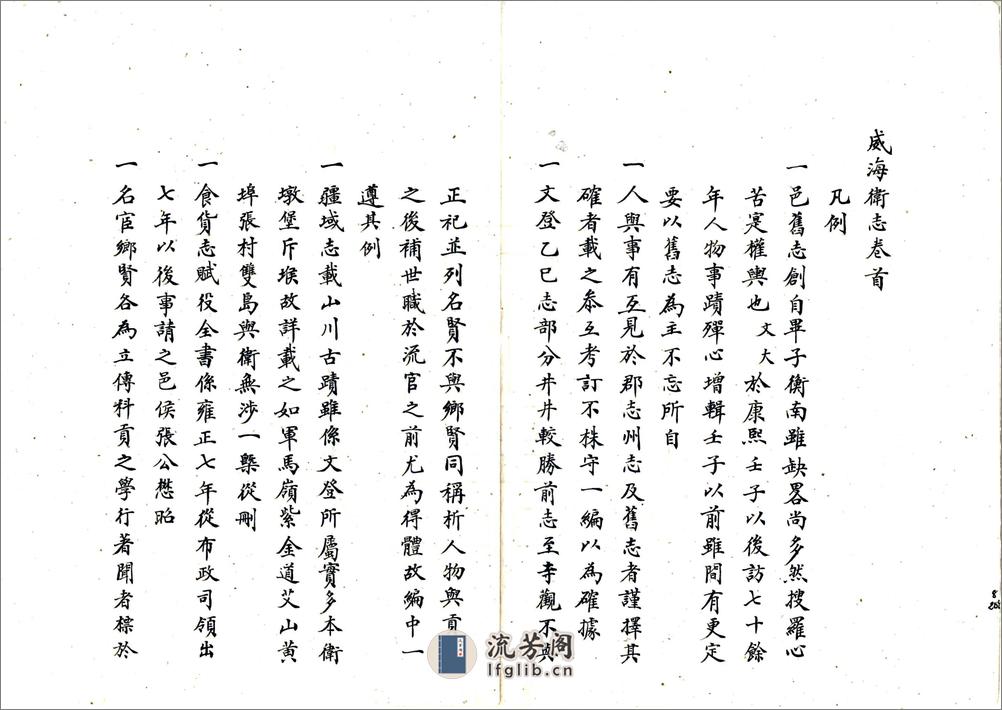 威海衛志卷首
凡例
一邑舊志創自畢子衡南雖缺畧尚多然搜羅心
苦寔權輿也文大於康熙壬子以後訪七十餘
年人物事蹟殫心增輯壬子以前雖間有更定
要以舊志為主不忘所自
一人與事有互見於郡志州志及舊志者謹擇其
確者載之叅互考訂不株守一編以為確據
一文登乙巳志部分井井較勝前志至寺觀不與
正祀並列名賢不與鄉賢同稱析人物與貢
之後補世職於流官之前尤為得體故編中一
遵其例
一疆域志載山川古蹟雖係文登所屬實多本衛
墩堡斥堠故詳載之如軍馬嶺紫金道艾山黃
埠張村雙島與衛無涉一槩從刪
一食貨志賦役全書係雍正七年從布政司領出
七年以後事請之邑侯張公懋昭
一名宦鄉賢各為立傳科貢之學行著聞者標於
流芳阁
lfglib.cn